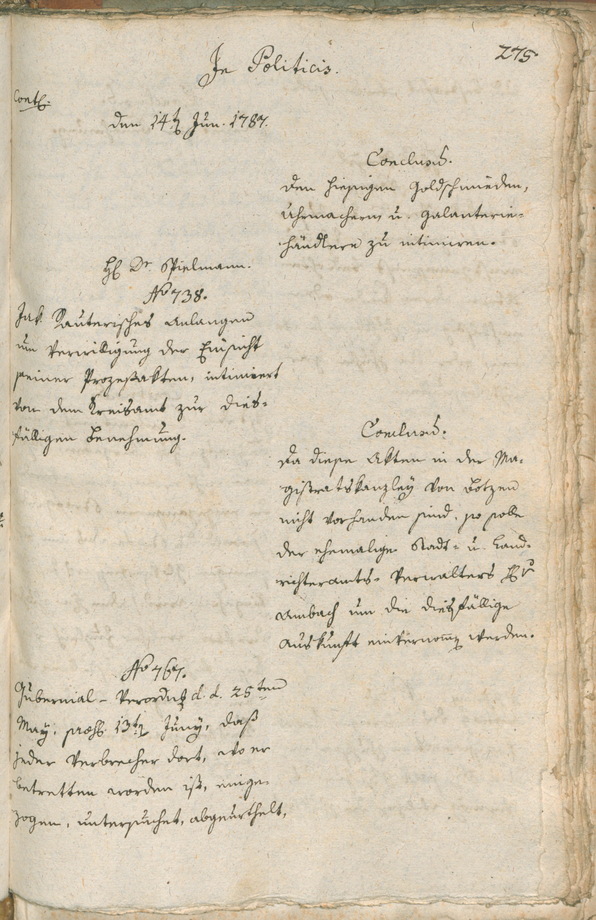 275
In Politicis.
Contl.
den 14tn Jun. 1787.
Conclus.
Den hiesigen Goldschmieden,
Uhrmachern u. Galanterie-
händlern zu intimiren.
H. Dr. Spielmann.
No 738.
Jak. Rauterisches Anlangen
um Verwilligung der Einsicht
seiner Prozeßakten, intimiert
von dem Kreisamt zur dies-
fälligen Benehmung.
Conclus.
Da diese Akten in der Ma-
gistratskanzley von Botzen
nicht vorhanden sind, so solle
der ehemalige Stadt- u. Land-
richteramts-Verwalters H. v
Ambach um die diesfällige
Auskunft einvernomm werden.
No 767.
Gubernial-Verordng d. d. 25ten
May, præs. 13tn Juny, daß
jeder Verbrecher dort, wo er
betretten worden ist, einge-
zogen, untersuchet, abgeurtheilt,